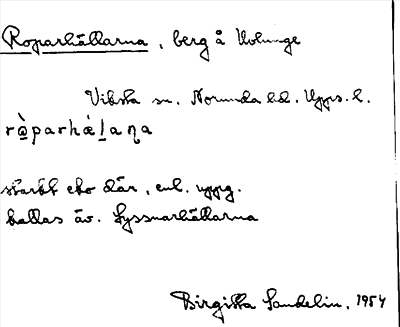 Roparhällarna, berg å Kolunge
Viksta sn. Norunda hd. Upps. l.
ròparhǽlaɳa
starkt eko där, enl. uppg.
kallas äv. Lyssnarhällarna
Birgitta Sandelin, 1954